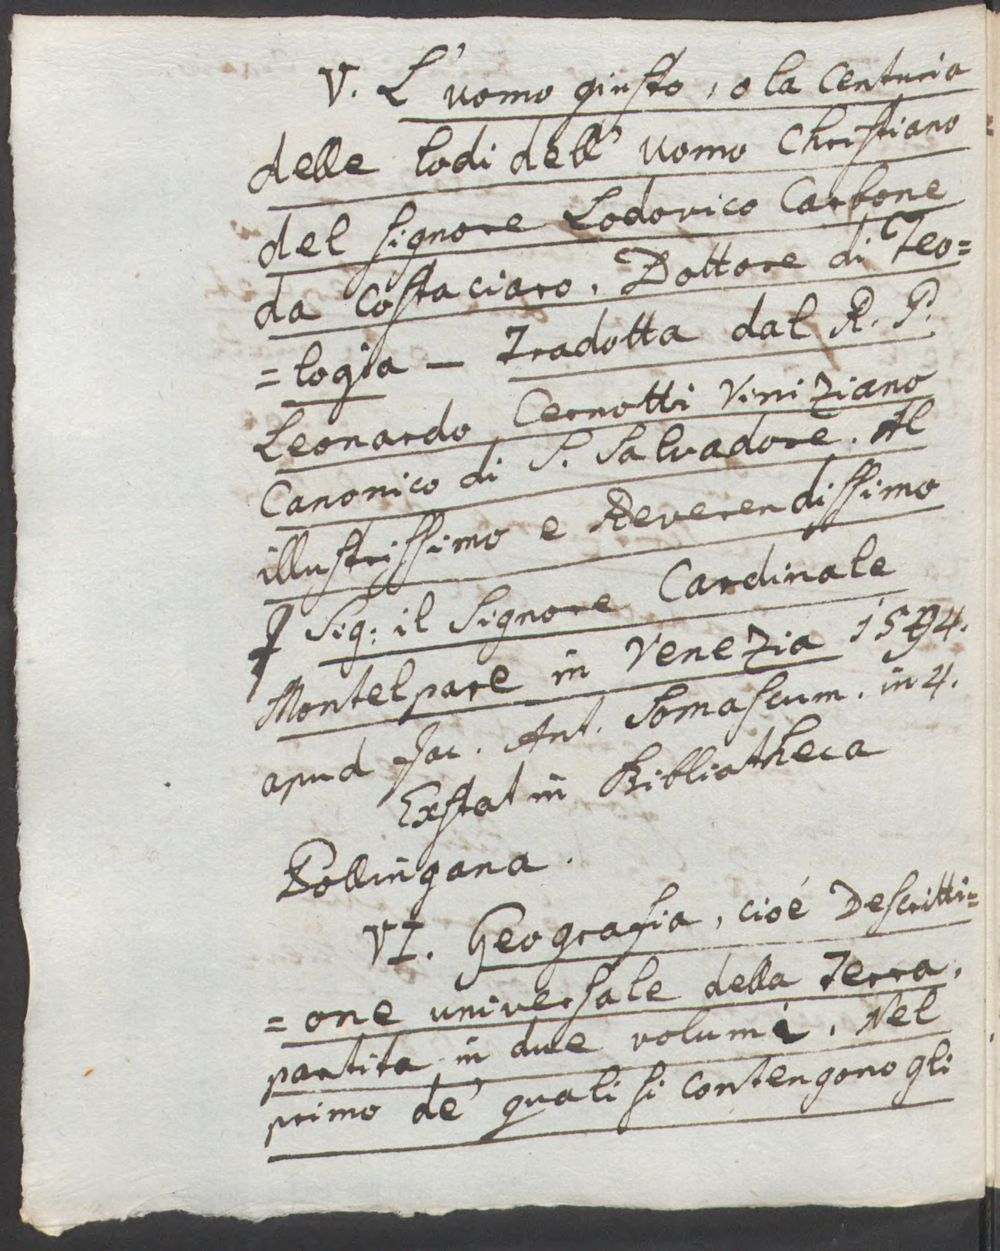 V. L'uomo giusto, o la Centuria
delle lodi dell' uomo Christiano
del signore Lodovico Carbone
da Costaciaro. Dottore di Teo=
=logia — Tradotta dal R. P.
Leonardo Cernotti Viniziano
Canonico di S. Salvadore. Al
illustrissimo e Reverendissimo
Sig: il Signore Cardinale
Montelpare in Venezia 1594.
apud Jac. Ant. Somascum. in 4.
Exstat in Bibliotheca
Pollingana.
VI. Geografia, cioé Descritti=
=one universale della Terra,
partita in due volumi. Nel
primo de' quali si contengono gli